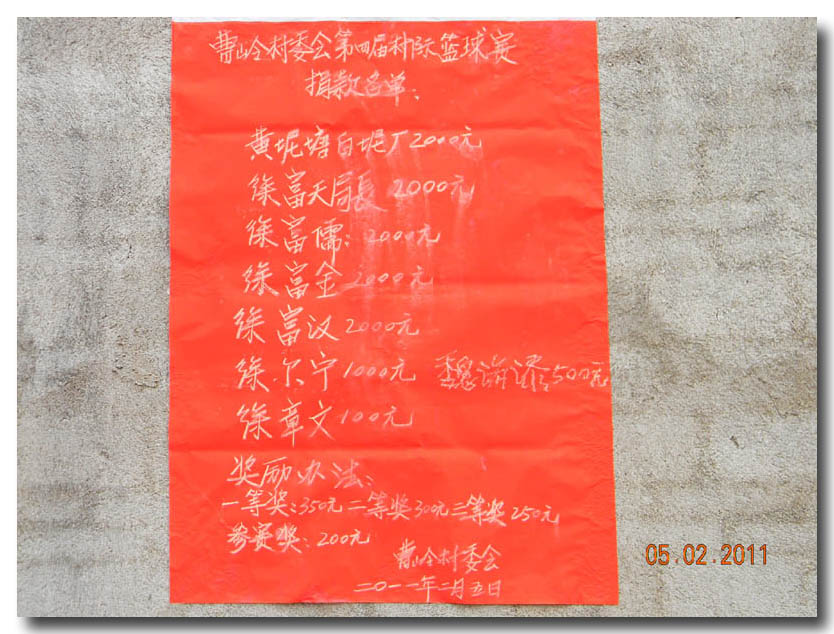 曹山仝村委会第四届村际篮球赛
捐款名单:
黄坭塘白坭厂2000元
徐富天局長 2000元
徐富儒: 2000元
徐富金 2000元
徐富汉 2000元
徐尔宁 1000元 魏 500元
徐章文 100元
奖励办法:
一等奖:350元 二等奖300元 三等奖250元
参赛奖: 200元
村委会
二〇一一年二月五日
05.02.2011